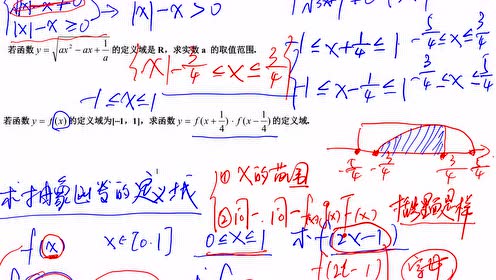 |x|-x≠0
|x|-x≥0 → |x|-x>0
若函数 y=√(ax²-ax+1/a) 的定义域是 R，求实数 a 的取值范围.
{x|-3/4≤x≤3/4}
-1≤x+1/4≤1 -5/4≤x≤3/4
-1≤x-1/4≤1 -3/4≤x≤5/4
-1≤x≤1
若函数 y=f(x)的定义域为[-1，1]，求函数 y=f(x+1/4)·f(x-1/4)的定义域.
-5/4 -3/4 3/4 5/4
求抽象函数的定义域
① x的范围
f(x) x∈[0.1] 0≤x≤1 求f(2x-1)
f(2t-1) 字母